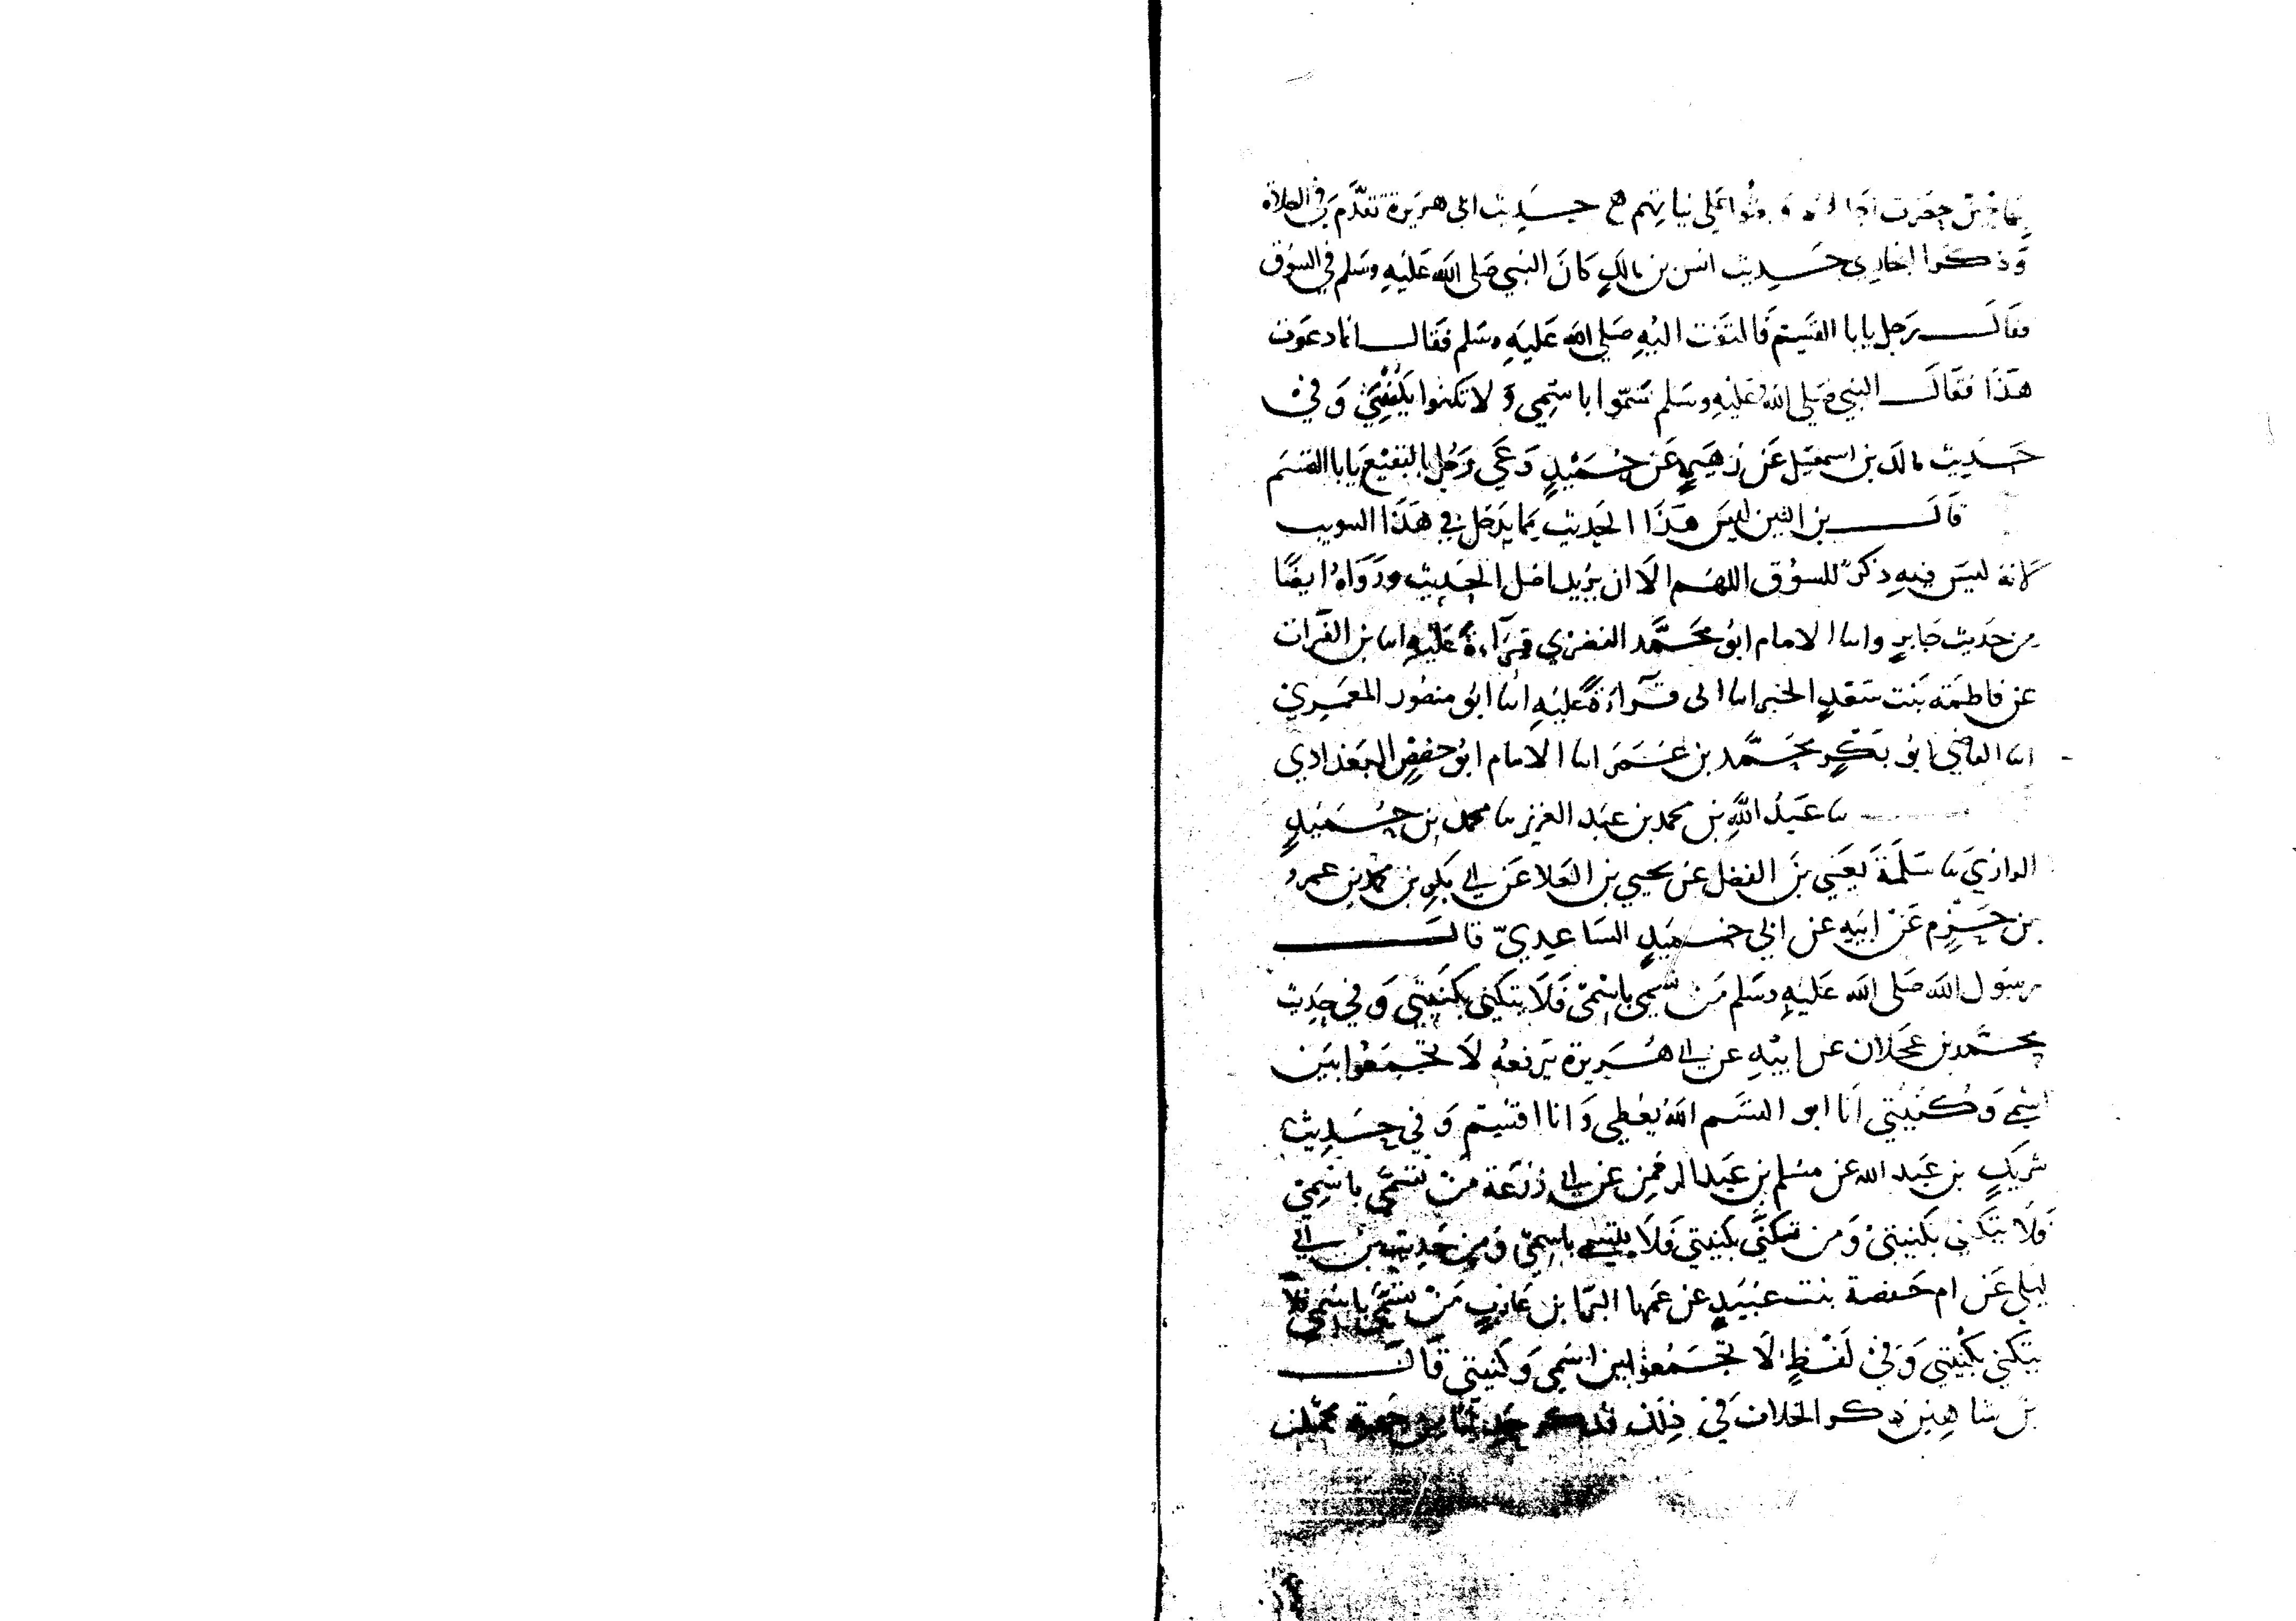 حضرت آجالهم وبعثوا على نياتهم مع حديث ابي هريرة تقدم في الصلاة
وذكر البخاري حديث انس بن مالك كان النبي صلى الله عليه وسلم في السوق
فقال رجل يابا القسم فالتفت اليه صلى الله عليه وسلم فقال انما دعوت
هذا فقال النبي صلى الله عليه وسلم تسموا باسمي ولا تكنوا بكنيتي وفي
حديث مالك بن اسمعيل عن زهير عن حميد دعي رجل بالبقيع يابا القسم
قال بن التين ليس هذا الحديث مما يدخل في هذا التبويب
لانه ليس فيه ذكر للسوق اللهم الا ان يريد اصل الحديث ورواه ايضا
من حديث جابر وانا الامام ابو محمد قراءة عليه انا بن الفرات
عن فاطمة بنت سعد الخير انا ابي قراءة عليه انا ابو منصور
انا القاضي ابو بكر محمد بن عمر انا الامام ابو حفص البغدادي
ثنا عبد الله بن محمد بن عبد العزيز ثنا محمد بن حميد
الرازي ثنا سلمة يعني بن الفضل عن يحيى بن العلا عن ابي بكر بن محمد بن عمرو
بن حزم عن ابيه عن ابي حميد الساعدي قال
رسول الله صلى الله عليه وسلم من تسمى باسمي فلا يتكنى بكنيتي وفي حديث
محمد بن عجلان عن ابيه عن ابي هريرة يرفعه لا تجمعوا بين
اسمي وكنيتي انا ابو القسم الله يعطي وانا اقسم وفي حديث
شريك بن عبد الله عن مسلم بن عبد الرحمن عن ابي زرعة من تسمى باسمي
فلا يتكنى بكنيتي ومن تكنى بكنيتي فلا يتسمى باسمي ومن حديث بن ابي
ليلى عن ام حفصة بنت عبيد عن عمها البرا بن عازب من تسمى باسمي فلا
يتكنى بكنيتي وفي لفظ لا تجمعوا بين اسمي وكنيتي قال
بن شاهين ذكر الخلاف في ذلك